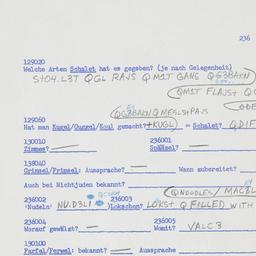 236
129020
Welche Arten Schalet hat es gegeben? (je nach Gelegenheit)
STO4.L3T QGL RAJS Q M1T GANS QG3BAKN
QM1T FLAJST
QG3BAKN Q MESLST PAJS
129060
Hat man Kugel/Gungel/Koul gemacht? + KUGL) = Schalet? QDIF
130010 236001
Zimmes? Spätsel?
138040
Grimsel/Frimsel: Aussprache? Wann zubereitet?
Auch bei Nichtjuden bekannt?
QNOODLES/
236002 236003
'Nudeln' NU.D3LI Lokschen? LOKST Q FILLED WITH
236004 236005
Worauf gewälzt? Womit? VALC3
130100
Farfel/Ferwel: bekannt? Aussprache